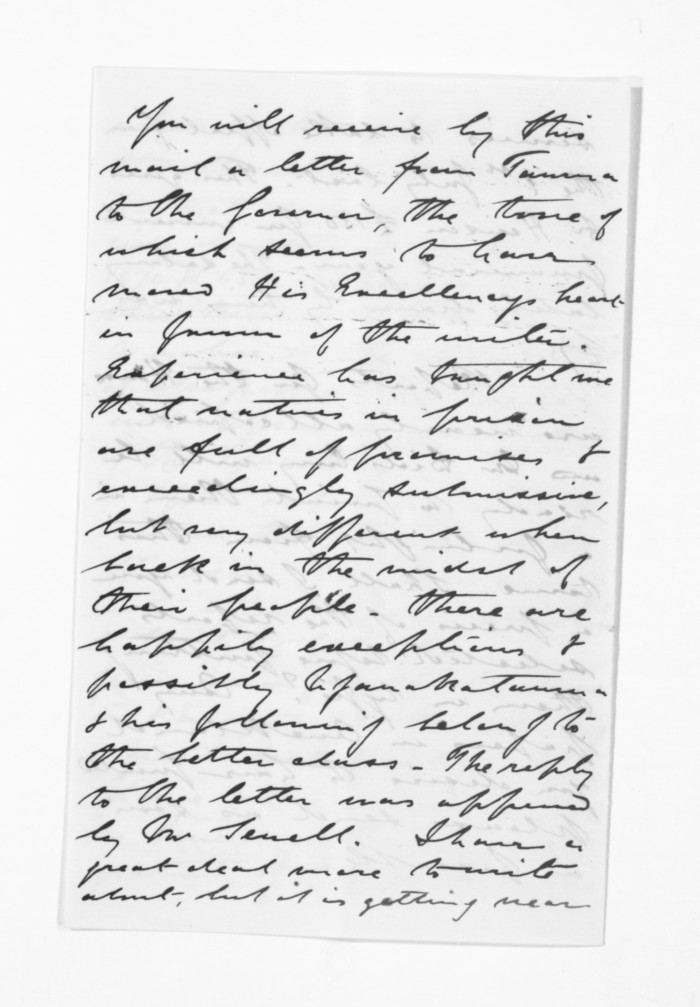 You will receive by this
mail a letter from Tauma
to the Governor, the tone of
which seems to have
moved His Excellency's heart
in favour of the writer.
Experience has taught me
that natives in prison
are full of promises &
exceedingly submissive,
but very different when
back in the midst of
their people. There are
happily exceptions &
possibly
& his following belong to
the better class. The reply
to the letter was approved
by Mr Sewell. I have a
great deal more to write
about, but it is getting near